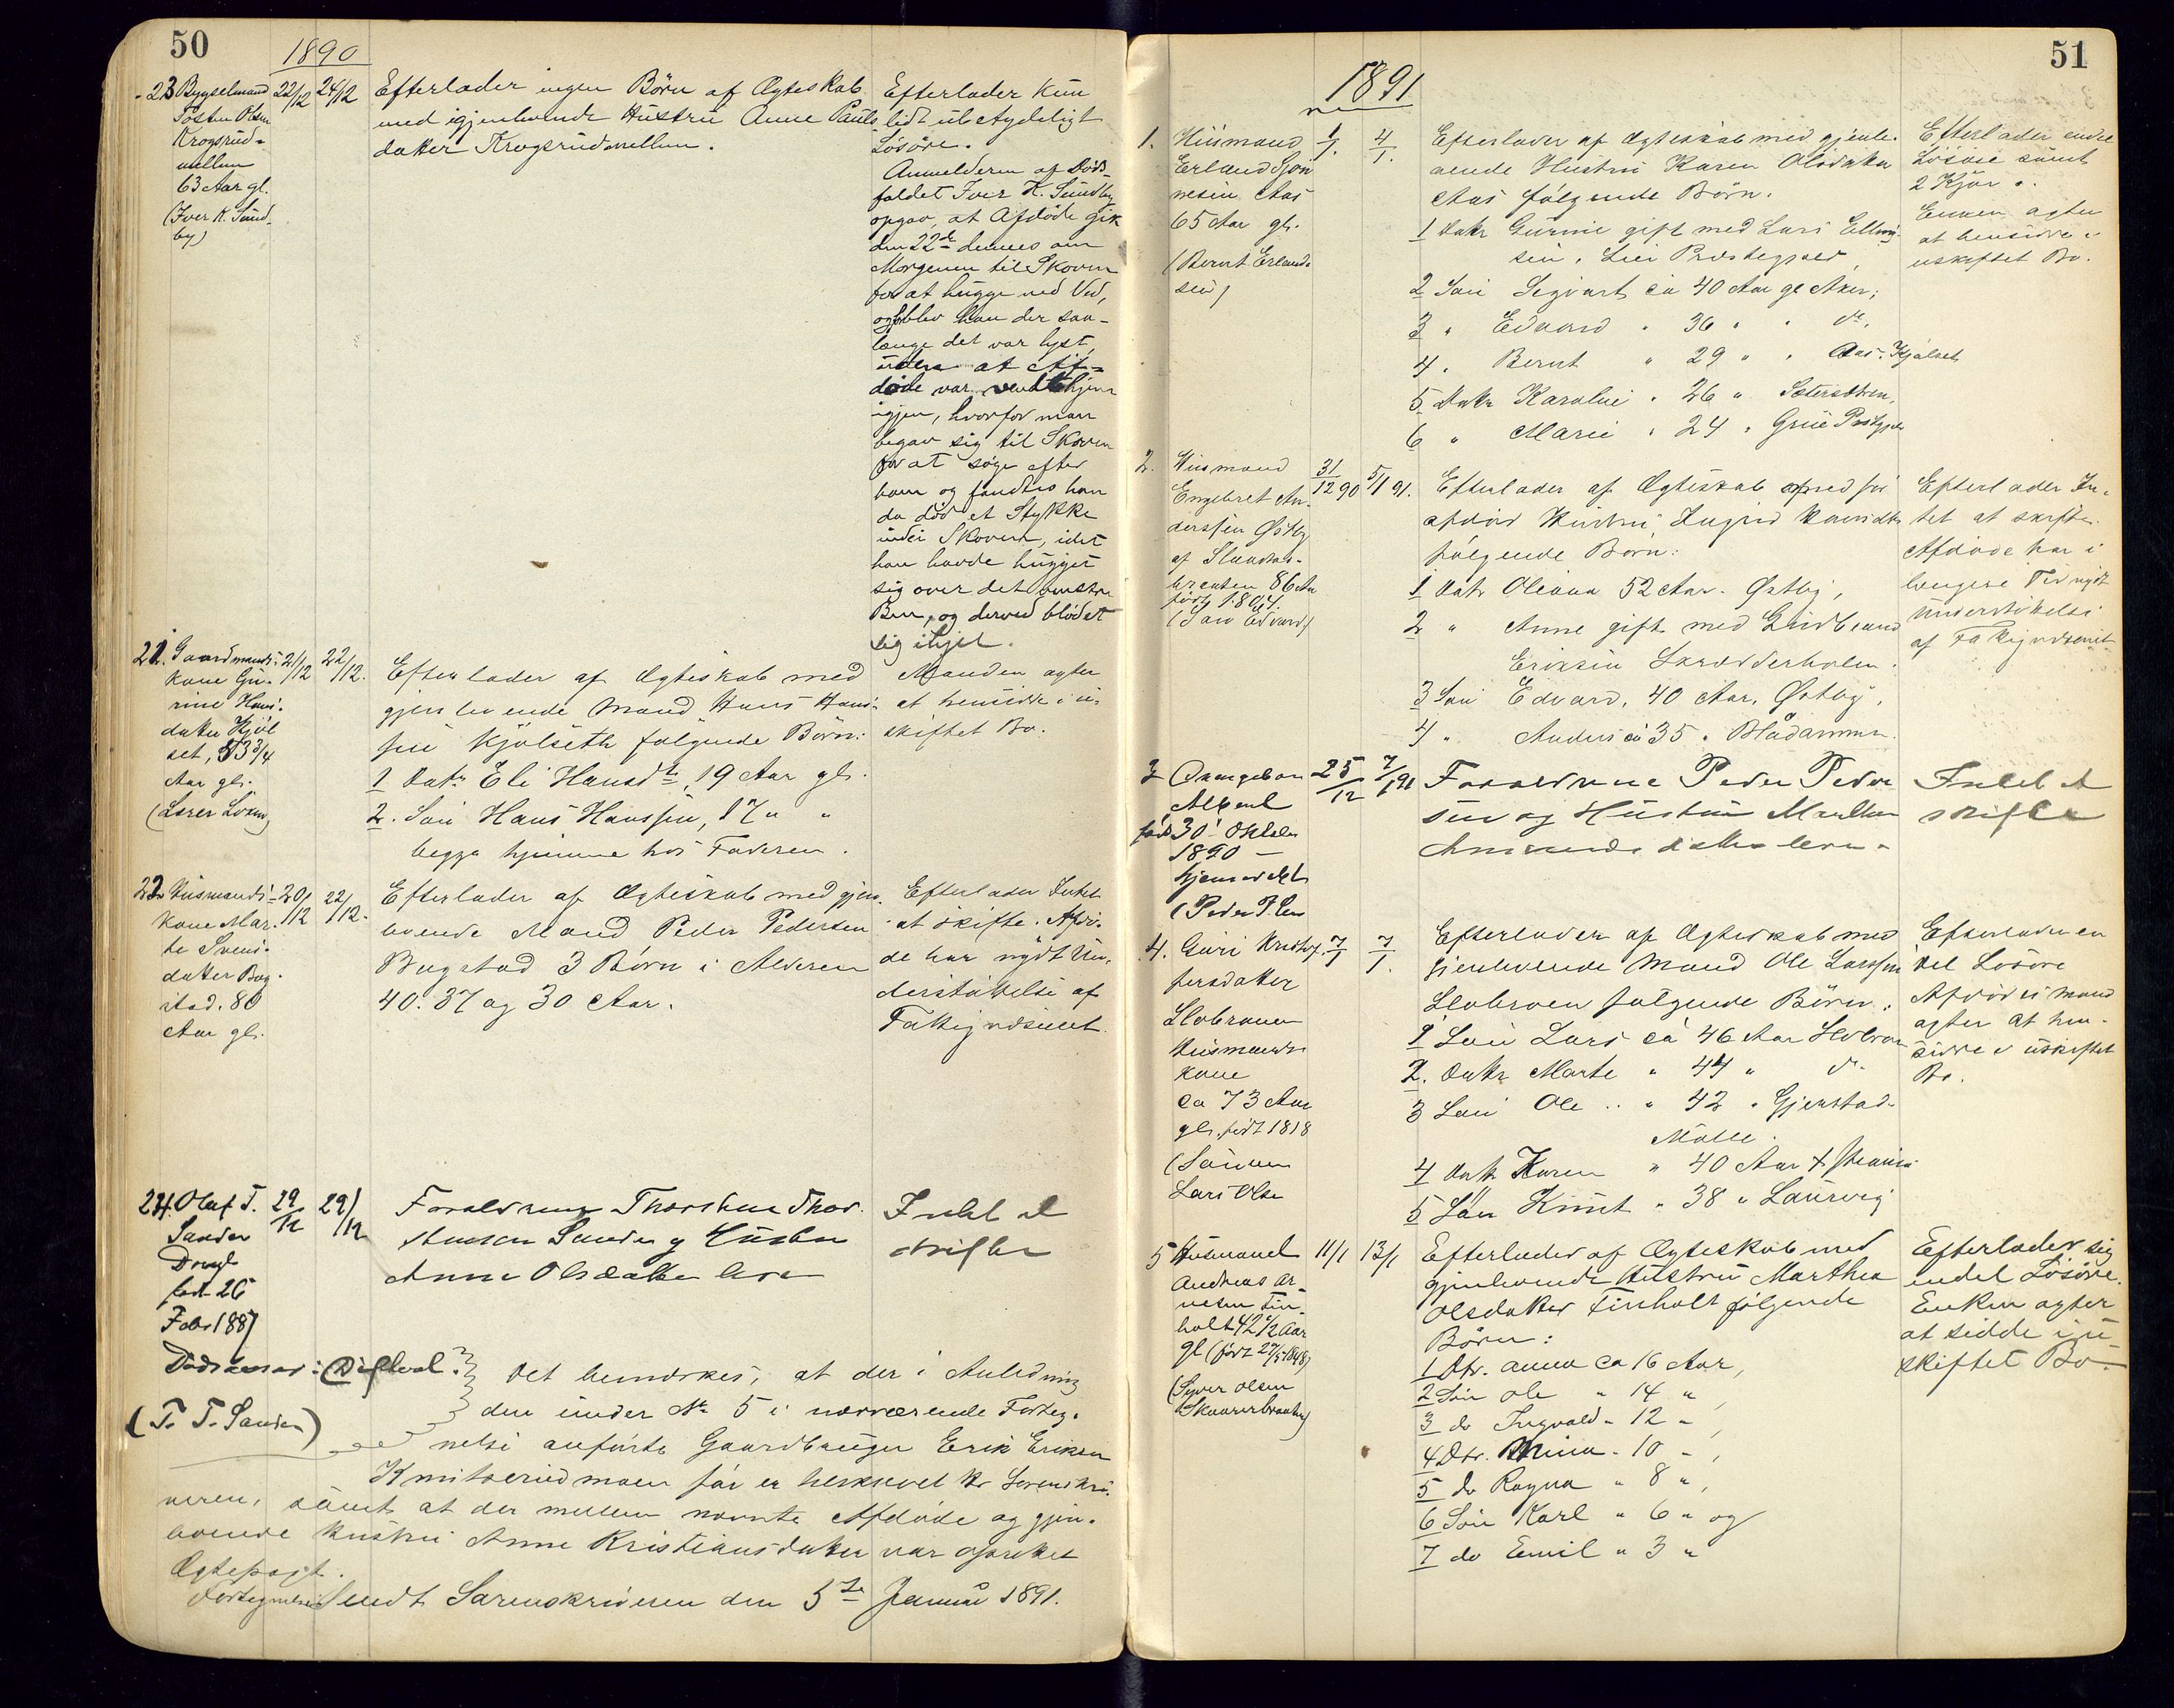 50
1890
23 Bygselmand 22/12 24/12
Tosten Olsen
Krogsrud-
mellum
63 Aar gl.
(Iver K. Sund-
by)
Efterlader ingen Børn af Ægteskab
med igjenlevende Hustru Anne Pauls-
datter Krogsrudmellum.
Efterlader kun
lidt ubetydeligt
Løsøre.
Anmelderen af Døds-
faldet Iver K. Sundby
opgav, at Afdøde gik
den 22de dennes om
Morgenen til Skoven
for at hugge ned Ved,
og blev han der saa-
længe det var lyst,
uden at Af-
døde var vendt hjem
igjen, hvorfor man
begav sig til Skoven
for at søge efter
ham og fandtes han
da død et Stykke
inde i Skoven, idet
han havde hugget
sig over det venstre
Ben, og derved blødet
sig ihjel.
21. Gaardmands- 21/12 22/12.
kone Gu-
rine Hans-
datter Kjøl
set, 53 3/4
Aar gl.
Efterlader af Ægteskab med
gjenlevende Mand Hans Hans-
sen Kjølseth følgende Børn:
1 Datr Eli Hansdtr, 19 Aar gl.
2. Søn Hans Hanssen, 17 " "
begge hjemme hos Faderen.
Manden agter
at hensidde i u-
skiftet Bo.
22 Husmands- 20/12 22/12.
kone Mar-
te Svens-
datter Bog-
stad. 80
Aar gl.
Efterlader af Ægteskab med gjen-
levende Mand Peder Pedersen
Bogstad 3 Børn i Alderen
40. 37 og 30 Aar.
Efterlader Intet
at skifte. Afdø-
de har nydt Un-
derstøttelse af
Fattigvæsenet
24. Olaf T. 29/12 29/12
Sander
Dreng
født 26
Febr 1887
Dødsaarsag: Difterit.
(T. T. Sander)
Forældrene Thorsten Thor-
stensen Sander og Hustru
Anne Olsdatter leve
Intet at
skifte
Det bemærkes, at der i Anledning
den under No 5 i nærværende Forteg-
nelse anførte Gaardbruger Erik Eriksen
Knitserudmoen før er beskrevet Hr Sorenskri-
veren, samt at der mellem nævnte Afdøde og gjen-
levende Hustru Anne Kristiansdatter var oprettet
Ægtepagt.
Fortegnelse Sendt Sorenskriveren den 5te Januar 1891.
51
1891
1. Husmand 1/1. 4/1.
Erland Gjøn
nesen Aas
65 Aar gl.
(Bernt Erland-
sen)
Efterlader af Ægteskab med gjenle-
vende Hustru Karen Olsdatter
Aas følgende Børn.
1 Datr Gurine gift med Lars Elling-
sen.
2 Søn Segvart ca 40 Aar gl Aker;
3 " Edvard " 36 " " do.
4. Bernt " 29 " " Aas. Kjølset
5 Datr Karoline " 26 "
6 " Marie " 24 " Grue Prstgjld
Efterlader endel
Løsøre samt
2 Kjør.
Enken agter
at hensidde i
uskiftet Bo.
2. Husmand 31/12 90 5/1 91.
Engebret An-
derssen Østby
86 Aar
født 1804.
(Søn Edvard)
Efterlader af Ægteskab med før
afdød Hustru
følgende Børn:
1 Datr Oleana 52 Aar. Østby,
2 " Anne gift med Guldbrand
Eriksen Skrædderholen.
3 Søn Edvard, 40 Aar, Østby,
4 " Anders ca 35 " Blaadammen.
Efterlader In-
tet at skifte.
Afdøde har i
længere Tid nydt
Understøttelse
af Fattigvæsenet
3 25/12 7/1 91
født 30 Oktober
1890 -
hjemmedøbt
(Peder P.
Forældrene Peder Peder
sen og Hustru Marthe
Amundsdatter leve.
Intet at
skifte
4. Guri Kristof- 7/1 7/1.
fersdatter
Husmands
kone
ca 73 Aar
gl. født 1818
(Sønnen
Lars Olsen
Efterlader af Ægteskab med
gjenlevende Mand Ole Larssen
følgende Børn:
1 Søn Lars ca 46 Aar
2. Datr Marte " 44 " do
3 Søn Ole " 42 " Gjerstad-
Mølle.
4 Datr Karen " 40 Aar
5 Søn Knut " 38 " Laurvig
Efterlader en
del Løsøre
Afdødes mand
agter at hen-
sidde i uskiftet
Bo.
5 Husmand 11/1 13/1
Andreas Ar-
nesen Fin-
holt 42 1/2 Aar
gl (født 27/5 1848)
(Syver Olsen
Skaarerbraaten)
Efterlader af Ægteskab med
gjenlevende Hustru Marthea
Olsdatter Finholt følgende
Børn:
1 Dtr. Anna ca 16 Aar,
2 Søn Ole " 14 ",
3 do Ingvald " 12 ",
4 Dtr. Mina " 10 ",
5 do Ragna " 8 ",
6 Søn Karl " 6 " og
7 do Emil " 3 "
Efterlader sig
endel Løsøre.
Enken agter
at sidde i u-
skiftet Bo.